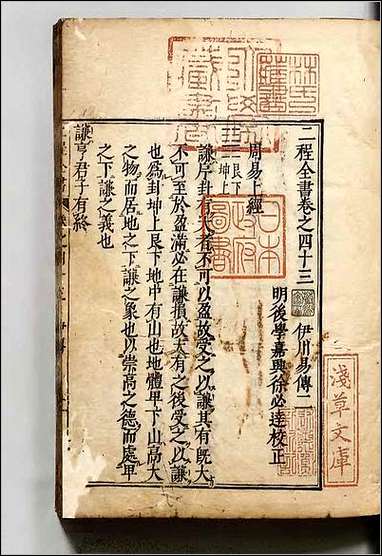 二程全書卷之四十三 伊川易傳二
明後學嘉興徐必達校正
周易上經
艮下
坤上
謙序卦有大者不可以盈故受之以謙其有既大
不可至於盈滿必在謙損故大有之後受之以謙
也為卦坤上艮下地中有山也地體卑下山高大
之物而居地之下謙之象也以崇高之德而處卑
之下謙之義也
謙亨君子有終
淺草文庫
日本
政府
圖書
林氏
藏書